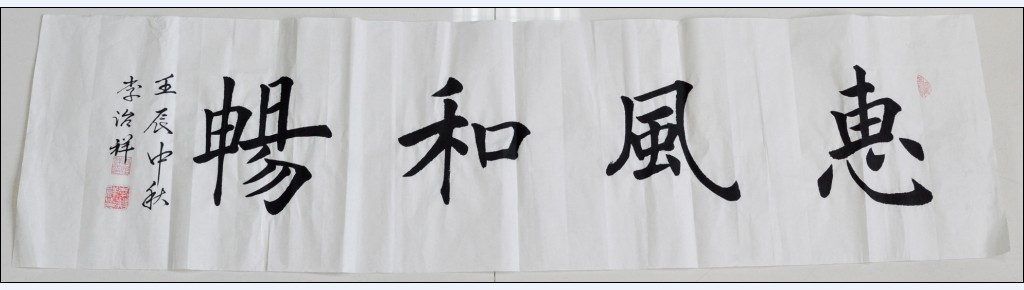 惠風和暢
壬辰中秋
李治祥